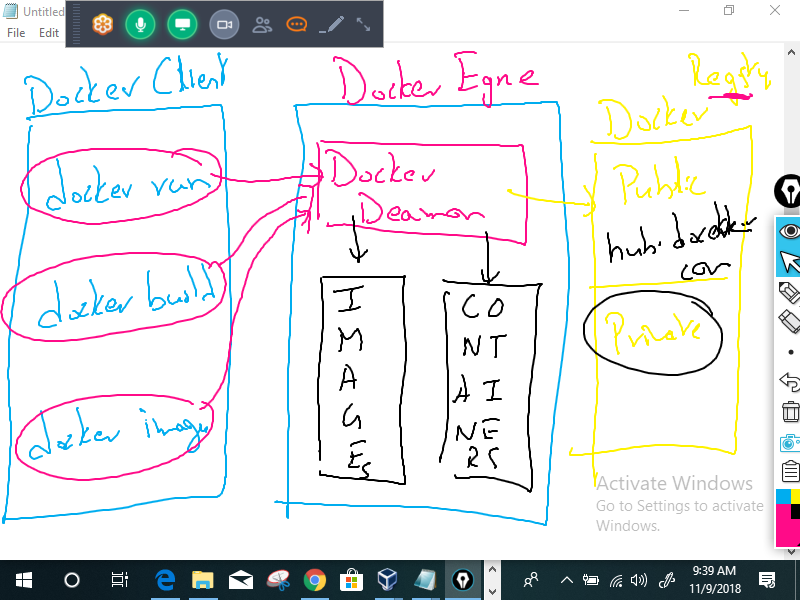 Untitled
File Edit
Docker Client
docker run
docker build
docker image
Docker Egne
Docker
Deamon
I
M
A
G
Es
CO
NT
AI
NE
RS
Registry
Docker
Public
hub.docker
com
Private
Activate Windows
Go to Settings to activate
Windows.
9:39 AM
11/9/2018